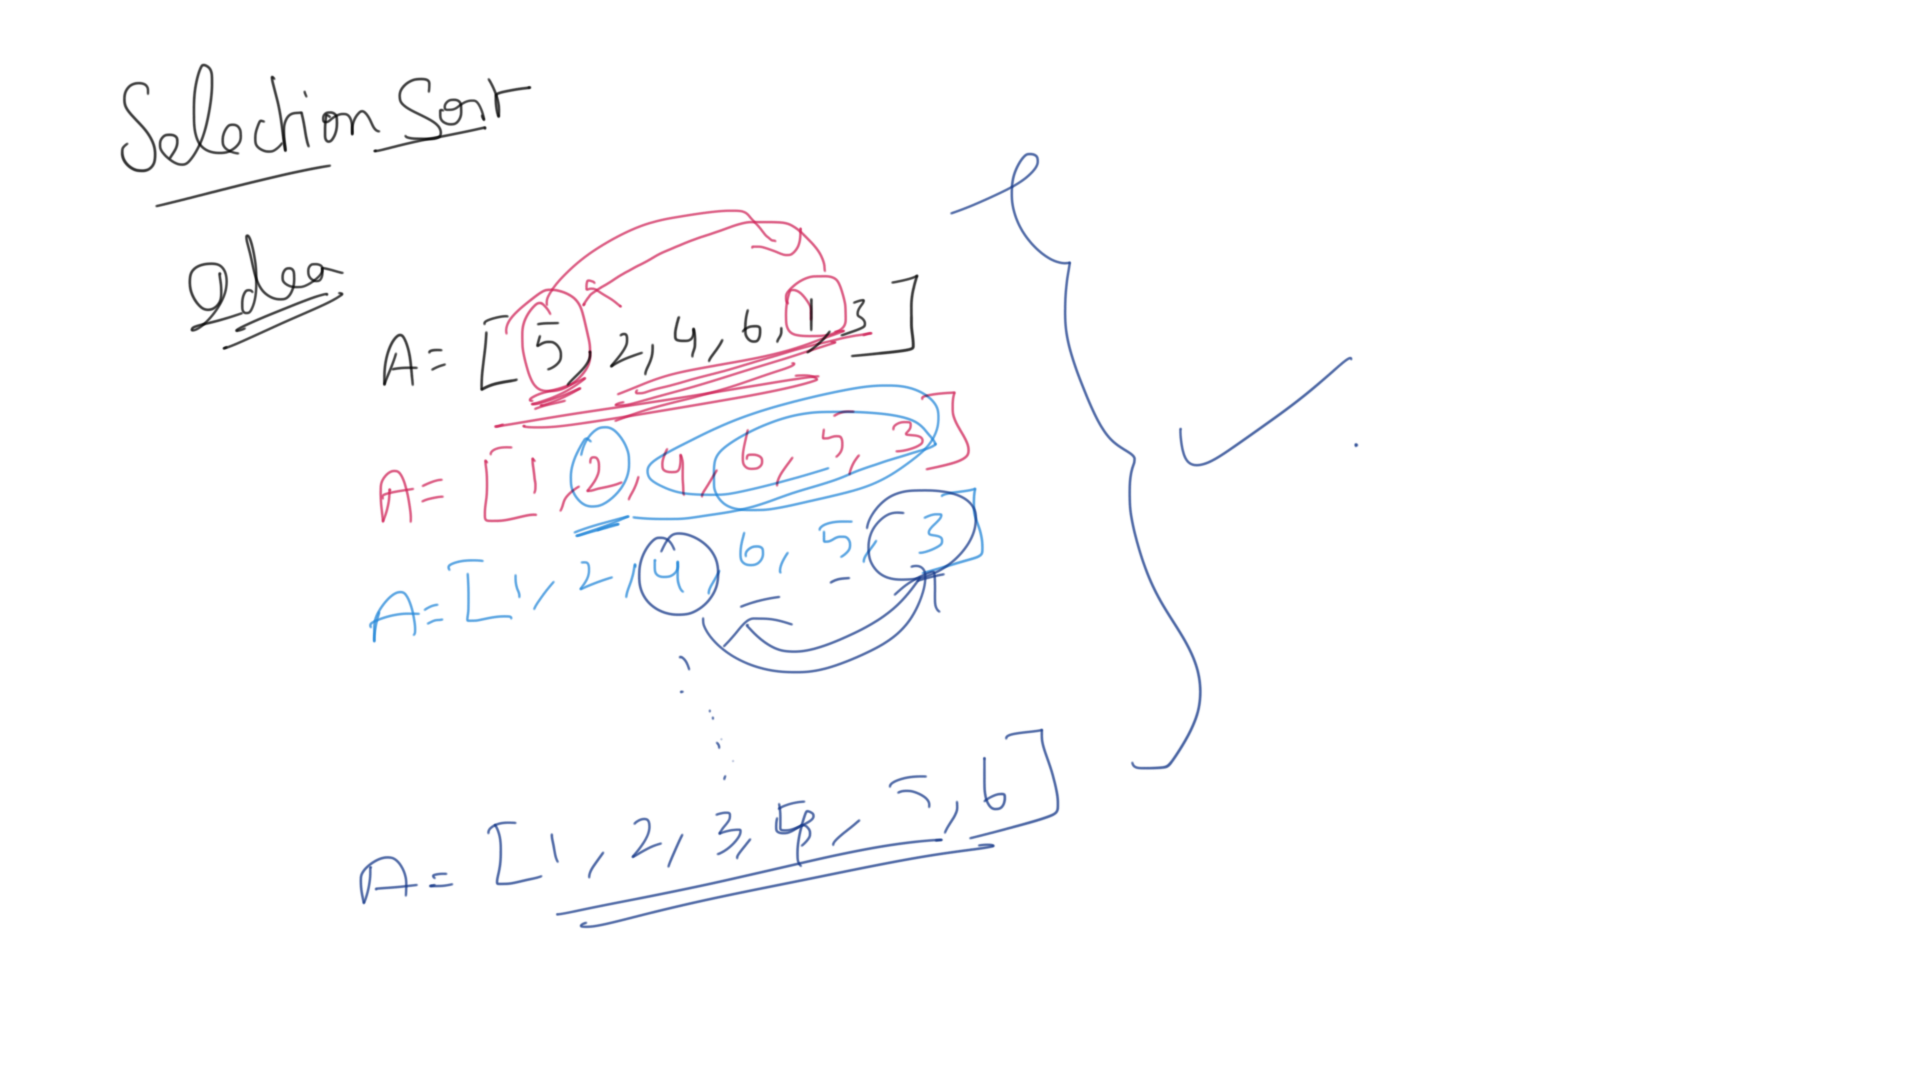 Selection Sort
Idea
A = [5, 2, 4, 6, 1, 3]
A = [1, 2, 4, 6, 5, 3]
A = [1, 2, 4, 6, 5, 3]
A = [1, 2, 3, 4, 5, 6]